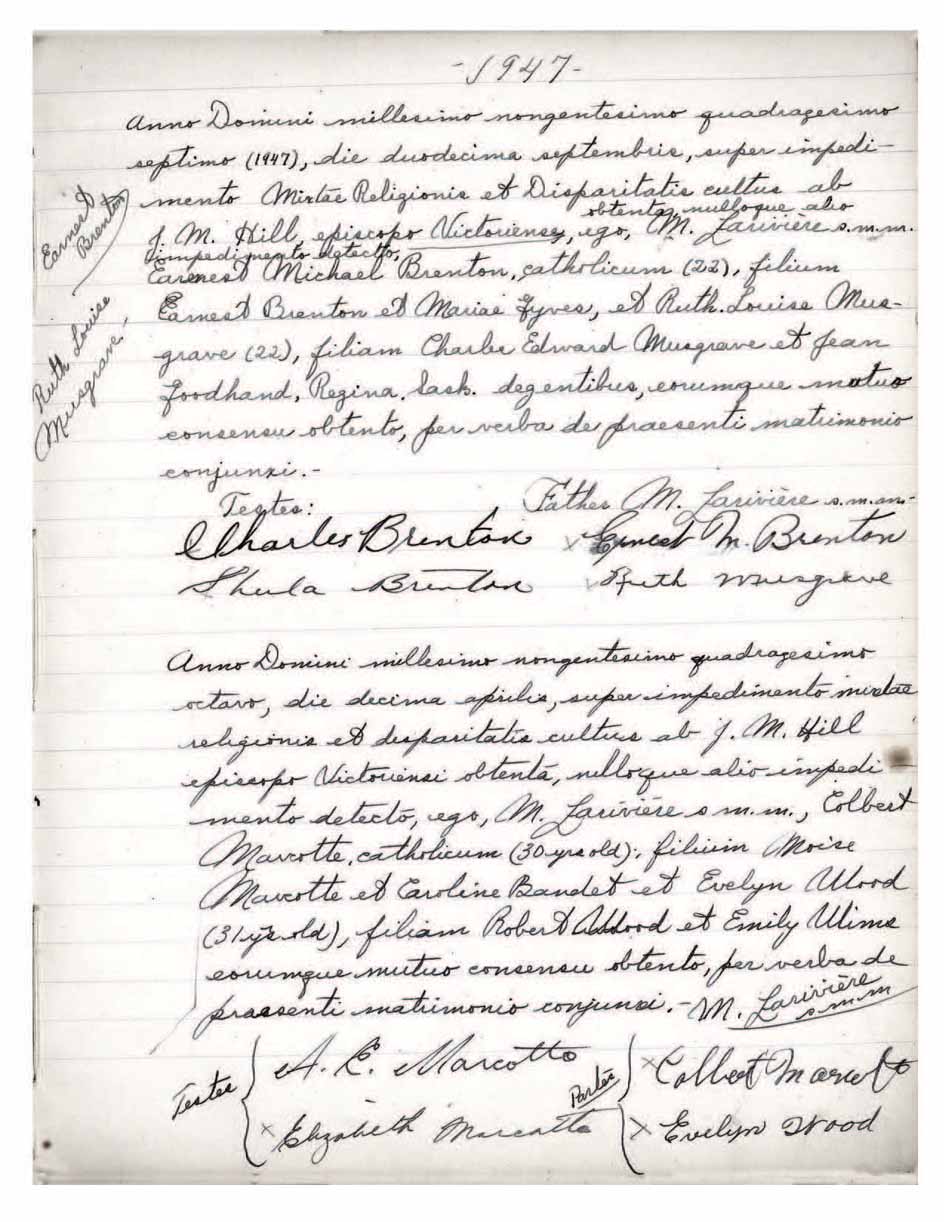 -1947-
Anno Domini millesimo nongentesimo quadragesimo
septimo (1947), die duodecima septembris, super impedi-
mento Mixtae Religionis et Disparitatis cultus ab
obtenta, nulloque alio
J. M. Hill, episcopo Victoriensi, ego, M. Larivière s.m.m.
impedimento detecto,
Earnest Michael Brenton, catholicum (22), filium
Earnest Brenton et Mariae Fyves, et Ruth Louise Mus-
grave (22), filiam Charles Edward Musgrave et Jean
Foodhand, Regina, Sask. degentibus, eorumque mutuo
consensu obtento, per verba de praesenti matrimonio
conjunxi.-
Earnest
Brenton
Ruth Louise
Musgrave.
Testes: Father M. Larivière s.m.m.-
Charles Brenton x Ernest M. Brenton
Sheila Brenton x Ruth Musgrave
Anno Domini millesimo nongentesimo quadragesimo
octavo, die decima aprilis, super impedimento mixtae
religionis et disparitatis cultus ab J. M. Hill
episcopo Victoriensi obtentâ, nulloque alio impedi-
mento detectô, ego, M. Larivière s m.m., Colbert
Marcotte, catholicum (30 yrs old), filium Moise
Marcotte et Caroline Baudet et Evelyn Wood
(31 yrs old), filiam Robert Wood et Emily Ulims
eorumque mutuo consensu obtento, per verba de
praesenti matrimonio conjunxi.- M. Larivière
s m m
Testes A. E. Marcotte Partes x Colbert Marcotte
x Elizabeth Marcotte x Evelyn Wood